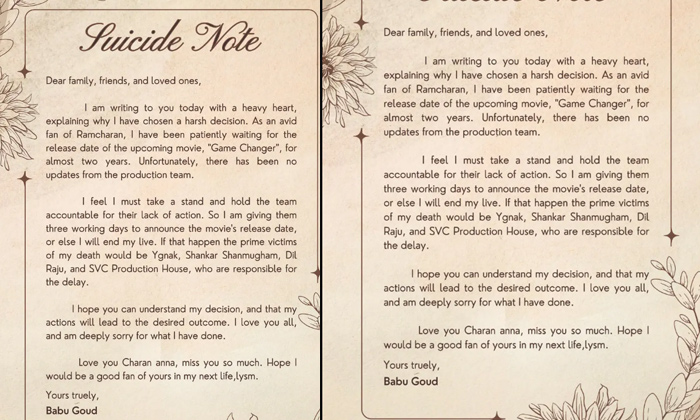 Suicide Note
Dear family, friends, and loved ones,
I am writing to you today with a heavy heart,
explaining why I have chosen a harsh decision. As an avid
fan of Ramcharan, I have been patiently waiting for the
release date of the upcoming movie, "Game Changer", for
almost two years. Unfortunately, there has been no
updates from the production team.
I feel I must take a stand and hold the team
accountable for their lack of action. So I am giving them
three working days to announce the movie's release date,
or else I will end my live. If that happen the prime victims
of my death would be Ygnak, Shankar Shanmugham, Dil
Raju, and SVC Production House, who are responsible for
the delay.
I hope you can understand my decision, and that my
actions will lead to the desired outcome. I love you all,
and am deeply sorry for what I have done.
Love you Charan anna, miss you so much. Hope I
would be a good fan of yours in my next life,lysm.
Yours truely,
Babu Goud
Dear family, friends, and loved ones,
I am writing to you today with a heavy heart,
explaining why I have chosen a harsh decision. As an avid
fan of Ramcharan, I have been patiently waiting for the
release date of the upcoming movie, "Game Changer", for
almost two years. Unfortunately, there has been no
updates from the production team.
I feel I must take a stand and hold the team
accountable for their lack of action. So I am giving them
three working days to announce the movie's release date,
or else I will end my live. If that happen the prime victims
of my death would be Ygnak, Shankar Shanmugham, Dil
Raju, and SVC Production House, who are responsible for
the delay.
I hope you can understand my decision, and that my
actions will lead to the desired outcome. I love you all,
and am deeply sorry for what I have done.
Love you Charan anna, miss you so much. Hope I
would be a good fan of yours in my next life,lysm.
Yours truely,
Babu Goud